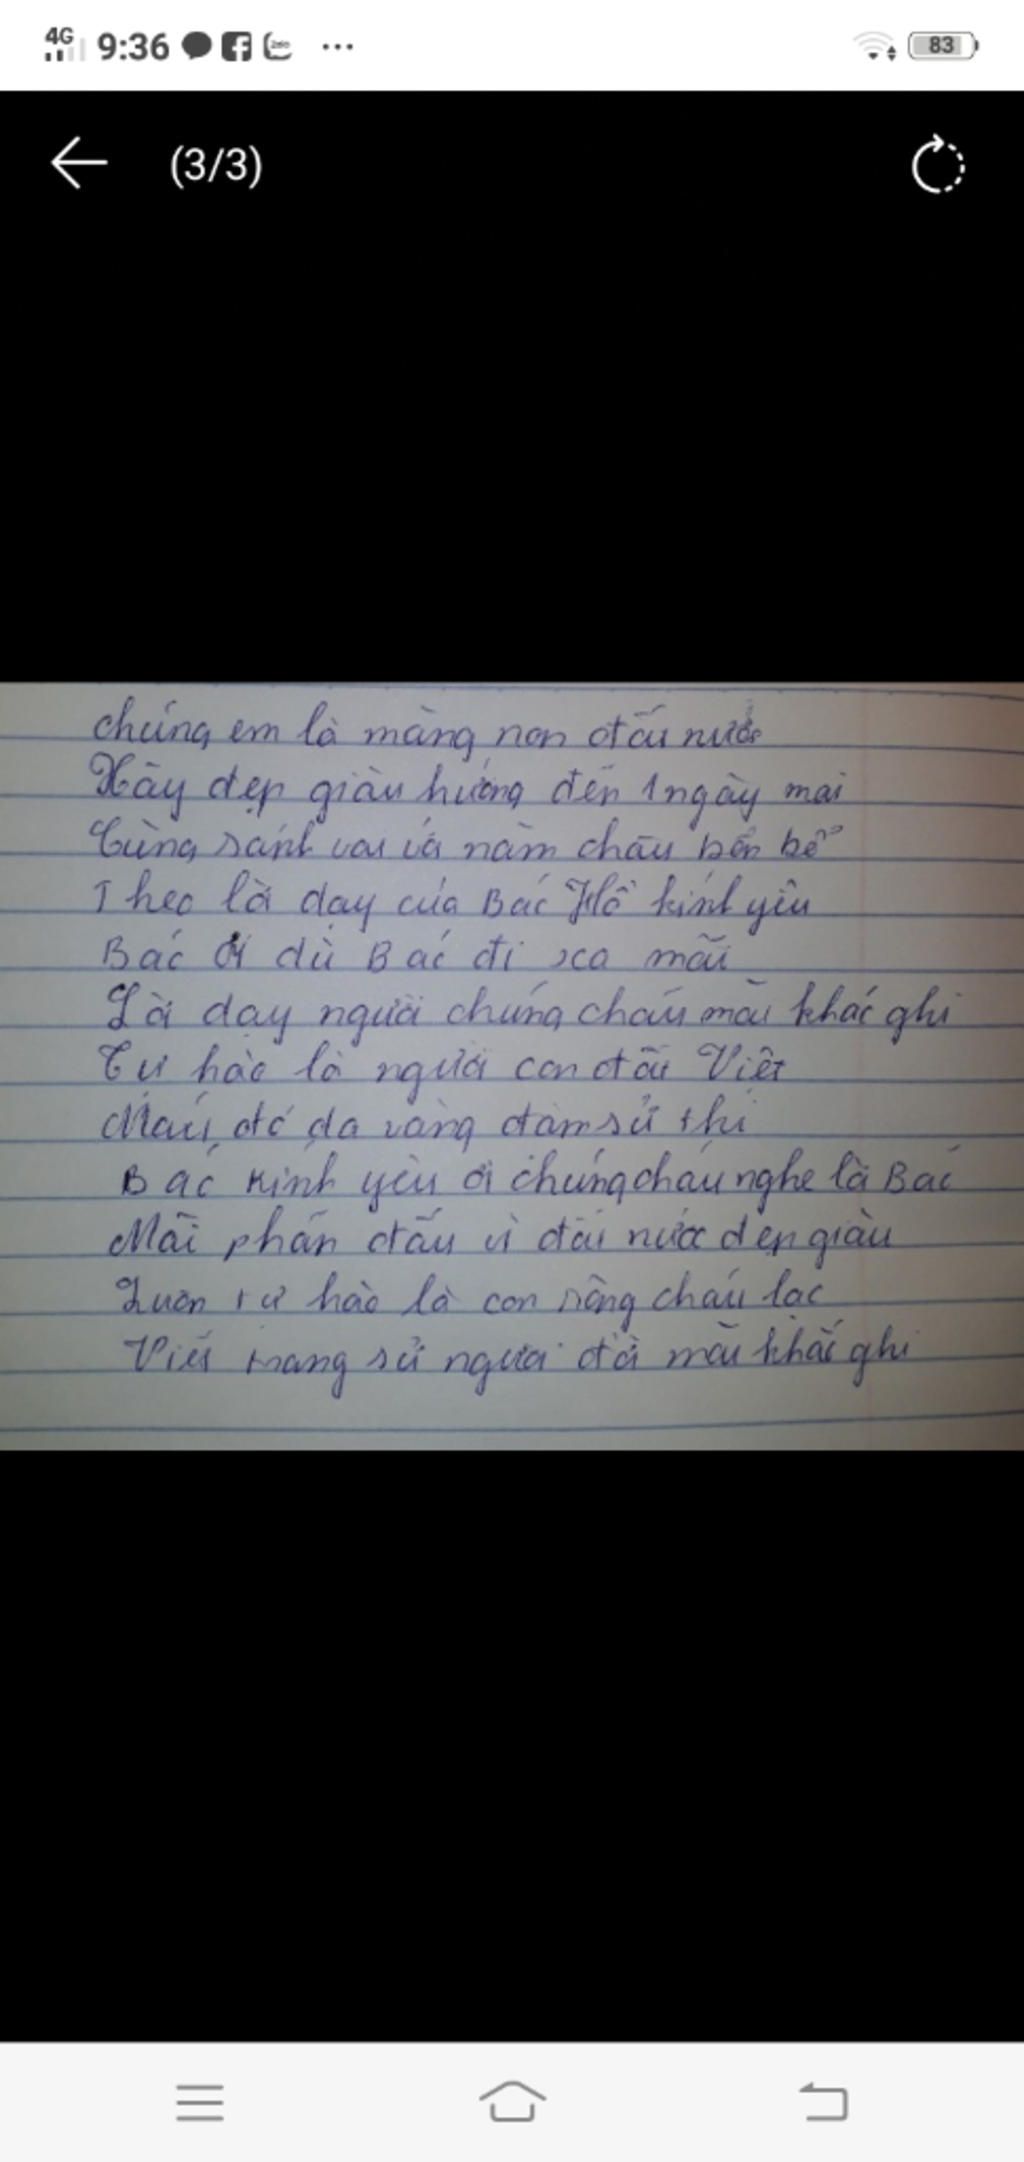 4G 9:36 ... 83
(3/3)
chúng em là măng non đất nước
Xây đẹp giàu hướng đến 1 ngày mai
Cùng sánh vai với năm châu bốn bể
Theo lời dạy của Bác Hồ kính yêu
Bác ơi dù Bác đi xa mãi
Lời dạy người chúng cháu mãi khắc ghi
Tự hào là người con đất Việt
Máu đỏ da vàng đậm sử thi
Bác kính yêu ơi chúng cháu nghe lời Bác
Mãi phấn đấu vì đất nước đẹp giàu
Luôn tự hào là con rồng cháu lạc
Viết trang sử người đời mãi khắc ghi